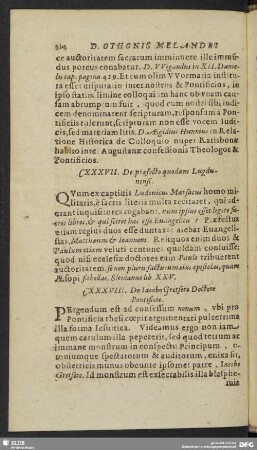 D. OTHONIS MELANDRI
ce auctoritatem sacrarum imminuere ille immundus
porcus conabatur. D. VVigandus in XII. Danielis
cap. pagina 429. Et cum olim VVormatiæ instituta
esset disputatio inter nostros & Pontificios, in
ipso statim limine colloquii in hanc obviam
causam abruptum fuit, quod cum nostri sibi judicem
denominarent scripturam, responsum a Pontificiis
tulerint, scripturam non esse vocem Judicis,
sed materiam litis. D. Ægidius Hunnius in Relatione
Historica de Colloquio nuper Ratisbonæ
habito inter Augustanæ confessionis Theologos &
Pontificios.
CXXXVII. De præfecto quodam Lugdunensi.
QVum ex captiuis Ludouicus Marsacus homo militaris,
è sacris literis multa recitaret, qui aderant
inquisitores rogabant, num ipsius esset legere sacros
libros, & qui sciret hac esse Euangelica? Præfectus
etiam regius duos esse duntaxat aiebat Euangelistas,
Matthæum & Ioannem. Reliquos enim duos &
Paulum etiam veluti centones quosdam consuisse:
quod nisi ecclesiæ doctores eam Paulo tribuerent
auctoritatem, se non pluris facturum eius epistolas, quam
Æsopi fabellas. Sleidanus lib. XXV.
CXXXVIII. De Iacobo Gretsero Doctore
Pontificio.
PErgendum est ad confessum nonum, vbi pro
Pontificia thesi cœpit argumentari pulcerrima
illa forma Iesuitica. Videamus ergo non iam
quem carculum illa pepererit, sed quod tetrum ac
immane monstrum in conspectu Principum,
omniumque spectatorum & auditorum, enixa sit,
obstetricis munus obeunte ipsomet patre, Iacobo
Gretsero. Id monstrum est exsecrabilis illa blasphemia
SLUB